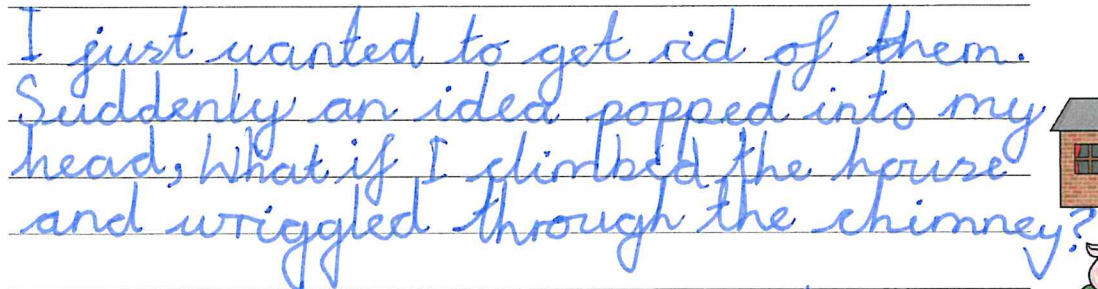 I just wanted to get rid of them.
Suddenly an idea popped into my
head, What if I climbed the house
and wriggled through the chimney?